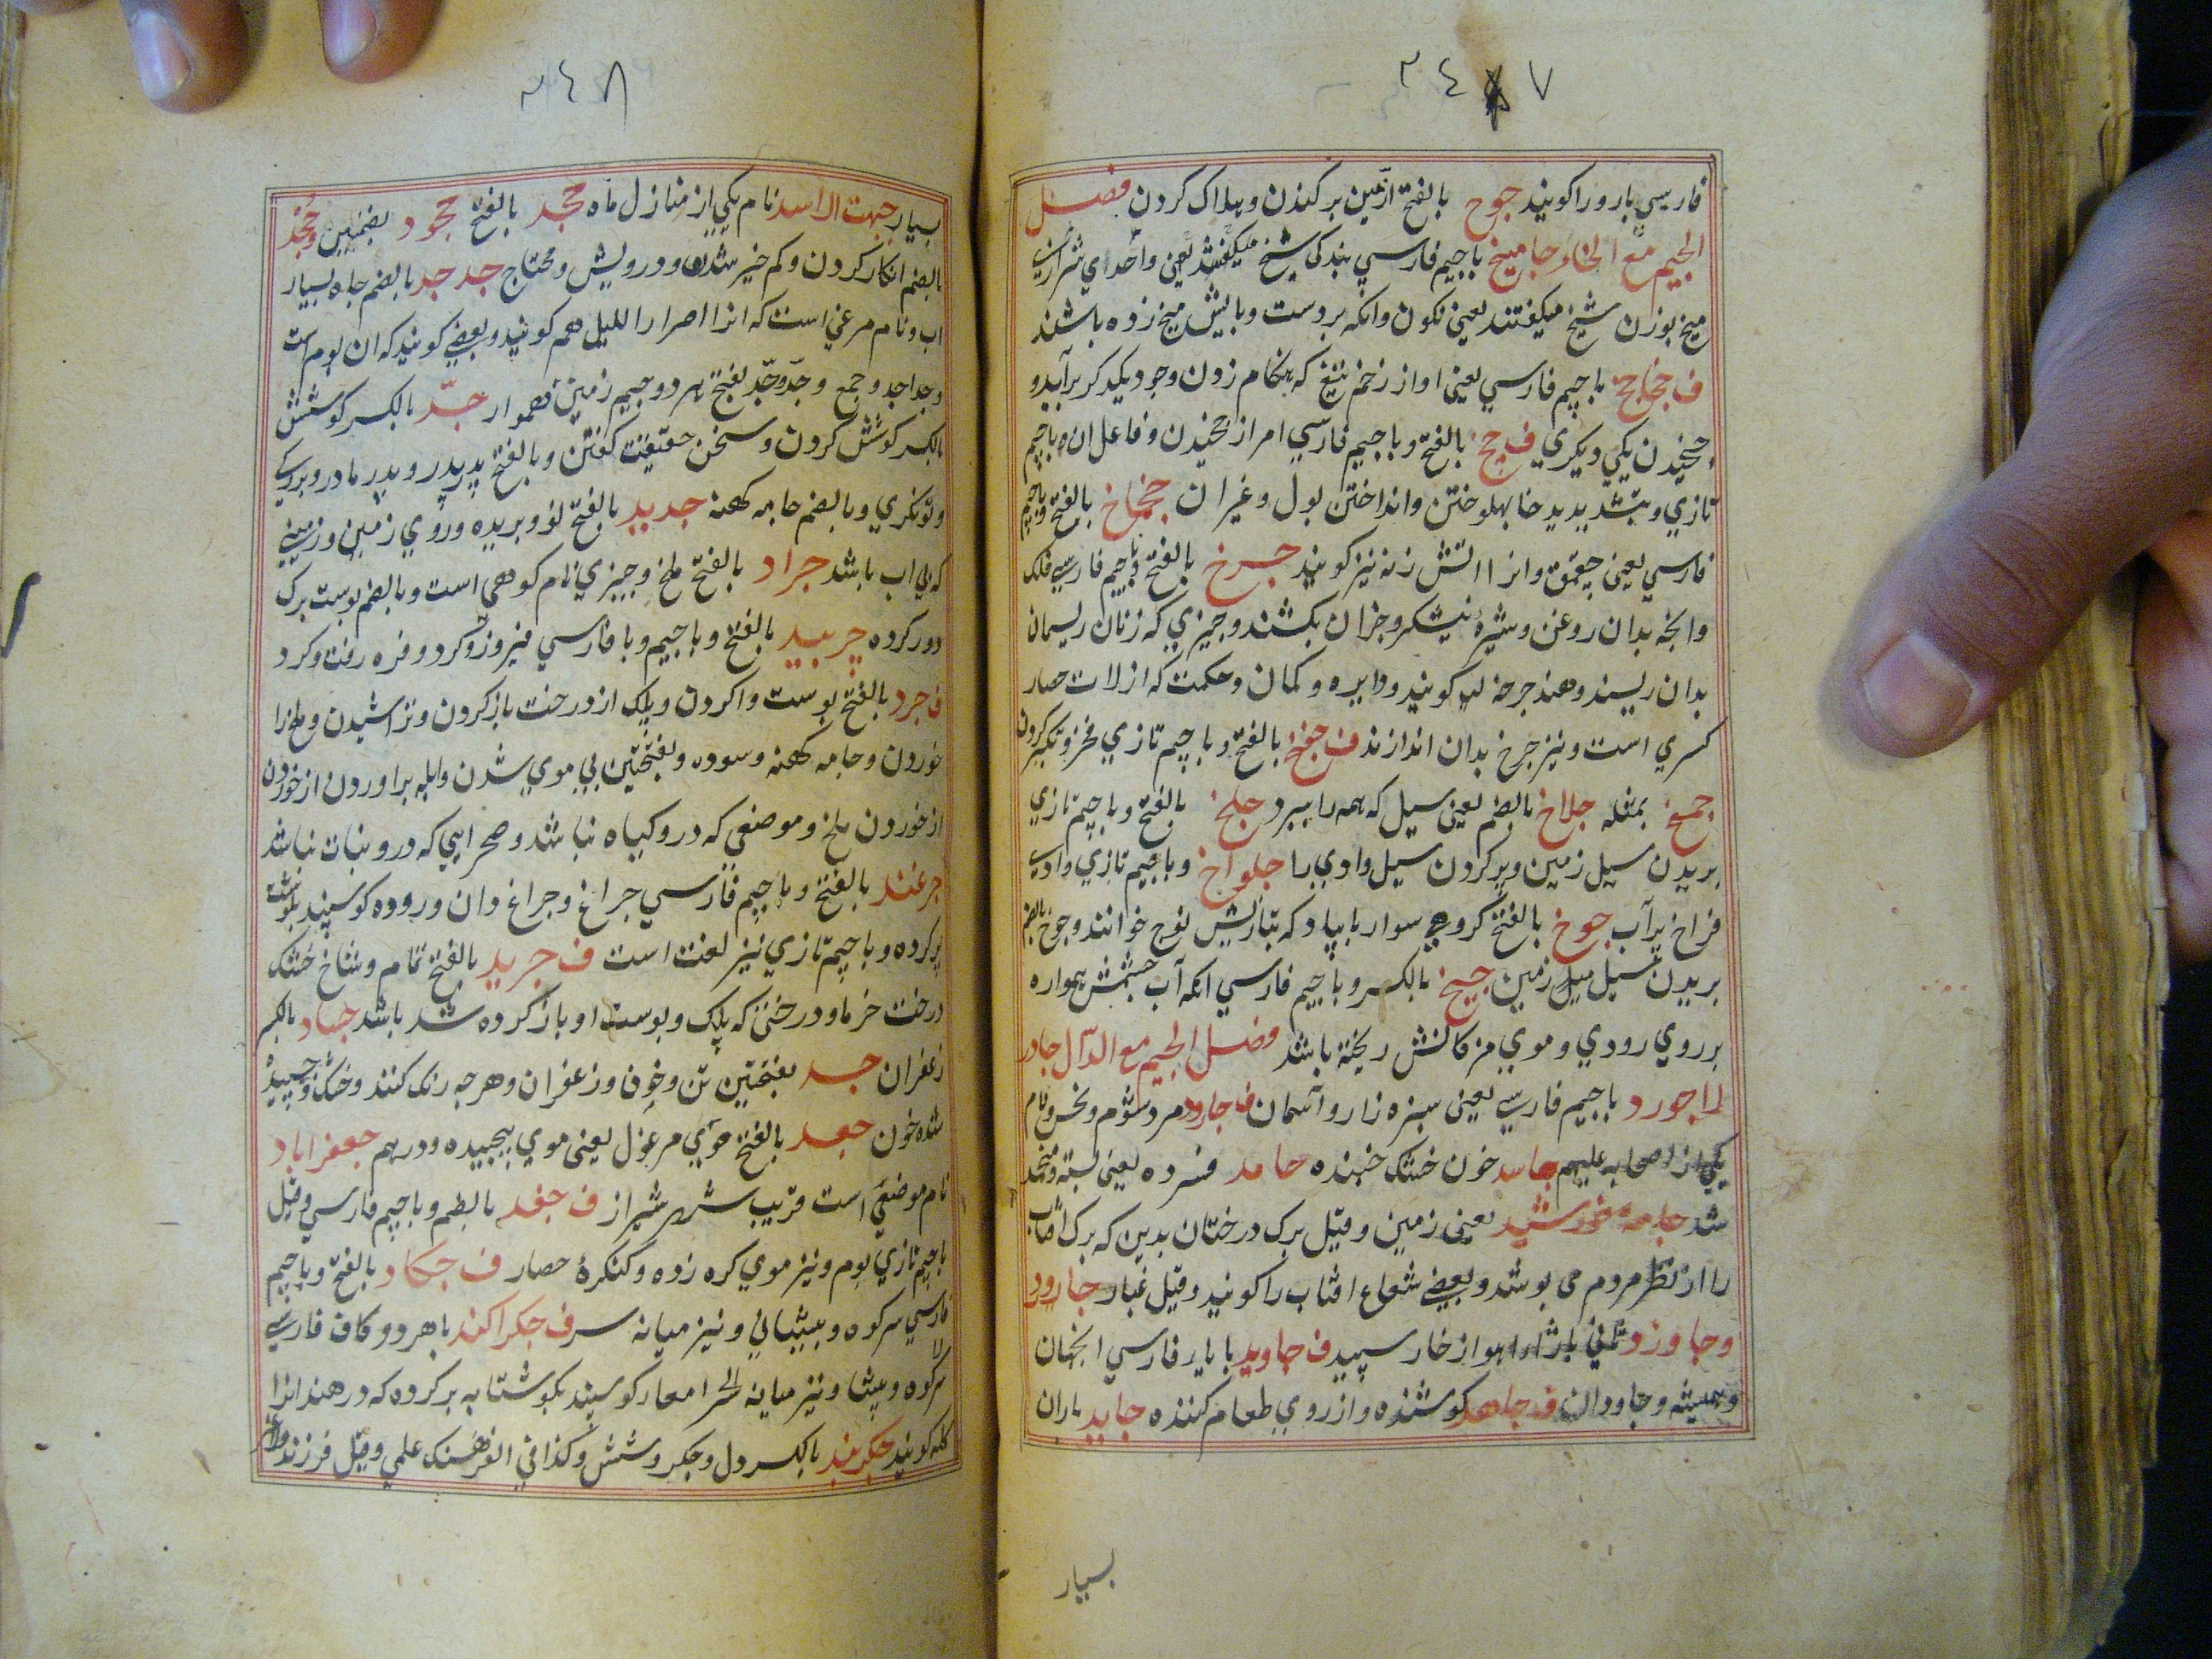 ٢٤٧
فارسي بار ورا كويند جوح بالفتح از مين بركندن وهلاك كردن فصل
الجيم مع الخاء جاميخ باجيم فارسي بندكى شيخ ميكفتند يعنى واحدى
ميخ بوزن شيخ ميكفتند يعنى نكون وانكه بر دست وپايش ميخ زده باشند
ف باجيم فارسي يعنى اواز زخم تيغ كه بهنكام زدن وجود يكديكر برآيد و
چخيدن يكي ديكري ف چخ بالفتح وباجيم فارسي امر از چخيدن وفاعل ان وباجيم
تازي وبتشديد خا پهلو ختن وانداختن بول وغير ان چخماخ بالفتح وباجيم
فارسي يعنى چقمق وانرا اتش زنه نيز كويند چرخ بالفتح وباجيم فارسي فلك
وانچه بدان روغن وشيرۀ نيشكر وجزان بكشند وچيزي كه زنان ريسمان
بدان ريسند وهند چرخه كويند ودايره وكمان وحكمت كه از الات حصار
كسري است ونيز چرخ بدان اندازند ف جفخ بالفتح وباجيم تازي فخر وتكبر كردن
جمخ بمثله جلاخ بالضم يعنى سيل كه همه را ببرد جلخ بالفتح وباجيم تازي
بريدن سيل زمين وپر كردن سيل وادي را جلواخ وباجيم تازي وادي
فراخ پر آب جوخ بالفتح كروهي سوار يا پياده كه بتازيش فوج خوانند وجوخ بالضم
بريدن سيل زمين چيخ بالكسر وباجيم فارسي انكه آب چشمش همواره
بر روي رودي وموي مژكانش ريخته باشد فصل الجيم مع الدال جادر
لاجورد باجيم فارسي يعنى سبزه زار وآسمان ف جارود مرد شوم ونحس ونام
يكي از اصحابه عليهم جاسد خون خشك خبنده جامد فسرده يعنى بسته ومنجمد
شد جامه خورشيد يعنى زمين وقيل برك درختان بدين كه برك افتاب
را از نظر مردم مى پوشد وبعضى شعاع افتاب را كويند وقيل غبار جارود
وجاوزد از خار سپيد ف جاويد با يار فارسي انجهان
وهميشه وجاودان ف جاهد كوشنده واز روي طعام كننده جايد باران
بسيار
٢٤٨
بسيار جبهت الاسد نام يكي از منازل ماه جحد بالفتح جحود بضمتين وجحد
بالضم انكار كردن وكم خير شدن ودرويش ومحتاج جدجد بالضم چاه بسيار
اب ونام مرغي است كه انرا اصرار الليل هم كويند وبعضى كويند كه ان بوم است
وجداجد وجمع وجد وجدد بفتح هر دو جيم زمين هموار جد بالكسر كوشش
بالكسر كوشش كردن وسخن حقيقت كفتن وبالفتح پدر پدر وپدر مادر وبزركي
وتونكري وبالضم جامه كهنه جديد بالفتح نو وبريده وروي زمين وزميني
كه بى اب باشد جراد بالفتح ملخ وچيزي نام كوهي است وبالضم پوست برك
دور كرده چربيد بالفتح وباجيم وبا فارسي فيروز وكرد وفره رفت وكرد
ف جرد بالفتح پوست واكردن وبلك از درخت باز كردن وتراشيدن وملخ را
خوردن وجامه كهنه وسوده وبفتحتين بى موي شدن وابله براوردن از خوردن
از خوردن ملخ وموضعى كه درو كياه نباشد وصحرايي كه درو نبات نباشد
جرغند بالفتح وباجيم فارسي چراغ وچراغ دان وروده كوسپند بكوشت
پر كرده وباجيم تازي نيز لغت است ف جريد بالفتح تمام وشاخ خشك
درخت خرما ودرختى كه بلك وپوست او باز كرده شد باشد جساد بالكسر
زعفران جسد بفتحتين تن وخون وزعفران وهرچه رنك كنند وخشك وچسپيده
شده خون جعد بالفتح موي مرغول يعنى موي پيچيده ودرهم جعفراباد
نام موضعى است قريب شهر شيراز ف جغد بالضم وباجيم فارسي وقيل
باجيم تازي بوم ونيز موي كره زده وكنكرۀ حصار ف چكاد بالفتح وباجيم
فارسي سركوه وپيشاني ونيز ميانه سر ف جكراكند باهر دو كاف فارسي
سركوه وپيشا ونيز ميانه امعار كوسپند بكوشتابه پر كرده كه در هند انرا
كله كويند جكربند بالكسر دل وجكر وشش وكذا في الفرهنك علمي وقيل فرزند